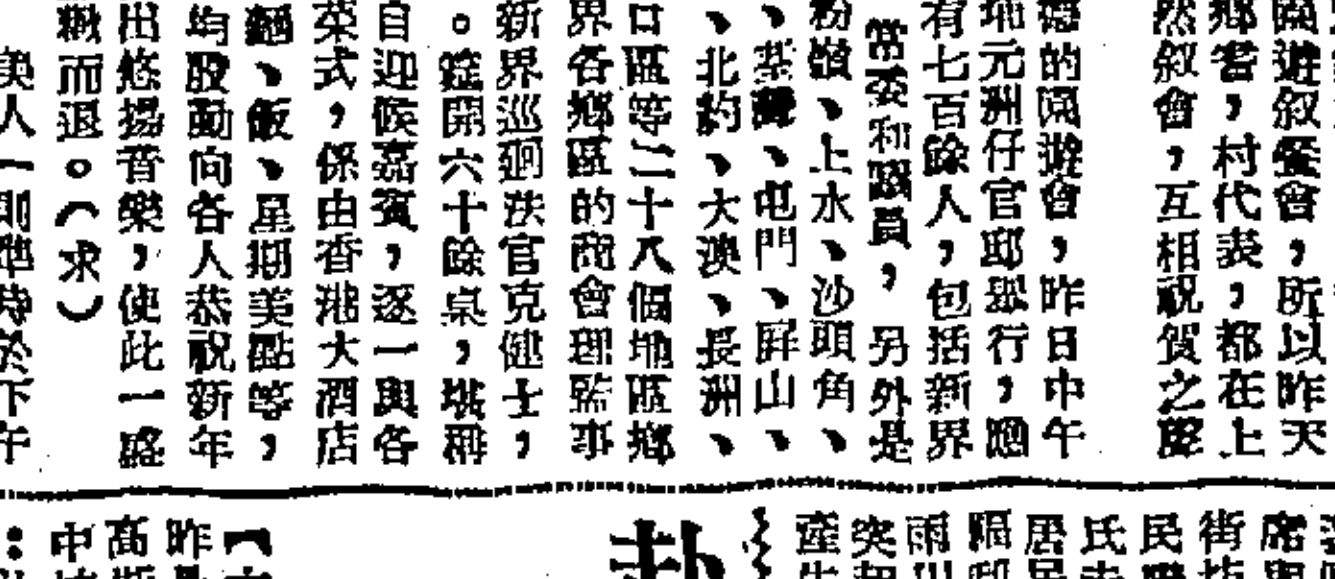 園遊敘餐會，所以昨天
鄉耆，村代表，都在上
然叙會，互相祝賀之
的園遊會，昨日中午
元洲仔官邸舉行，應
有七百餘人，包括新界
常委和職員，另外是
粉嶺、上水、沙頭角、
、荃灣、屯門、屏山、
、北約、大澳、長洲、
口區等二十八個地區鄉
界各鄉區的商會理監事
新界巡廻法官克健士，
。筵開六十餘桌，堪稱
自迎候嘉賓，逐一與各
菜式，係由香港大酒店
麵、飯、星期美點等，
均殷勤向各人恭祝新年
出悠揚音樂，使此一盛
歡而退。（求）
美人一則準時於下午
席
街坊
民
氏夫
居民
隔邨
雨
突起
產生
赴
昨
高
中